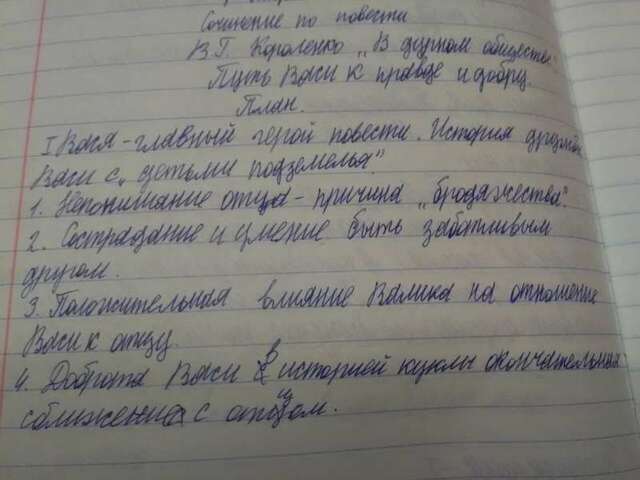 Сочинение по повести
В.Г. Короленко „В дурном обществе".
Путь Васи к правде и добру.
План.
I Вася - главный герой повести. История дружбы
Васи с „детьми подземелья".
1. Непонимание отца - причина „бродяжества".
2. Сострадание и умение быть заботливым
другом.
3. Положительная влияние Валика на отношение
Васи к отцу.
4. Доброта Васи в историей куклы окончательная
сближение с отцом.